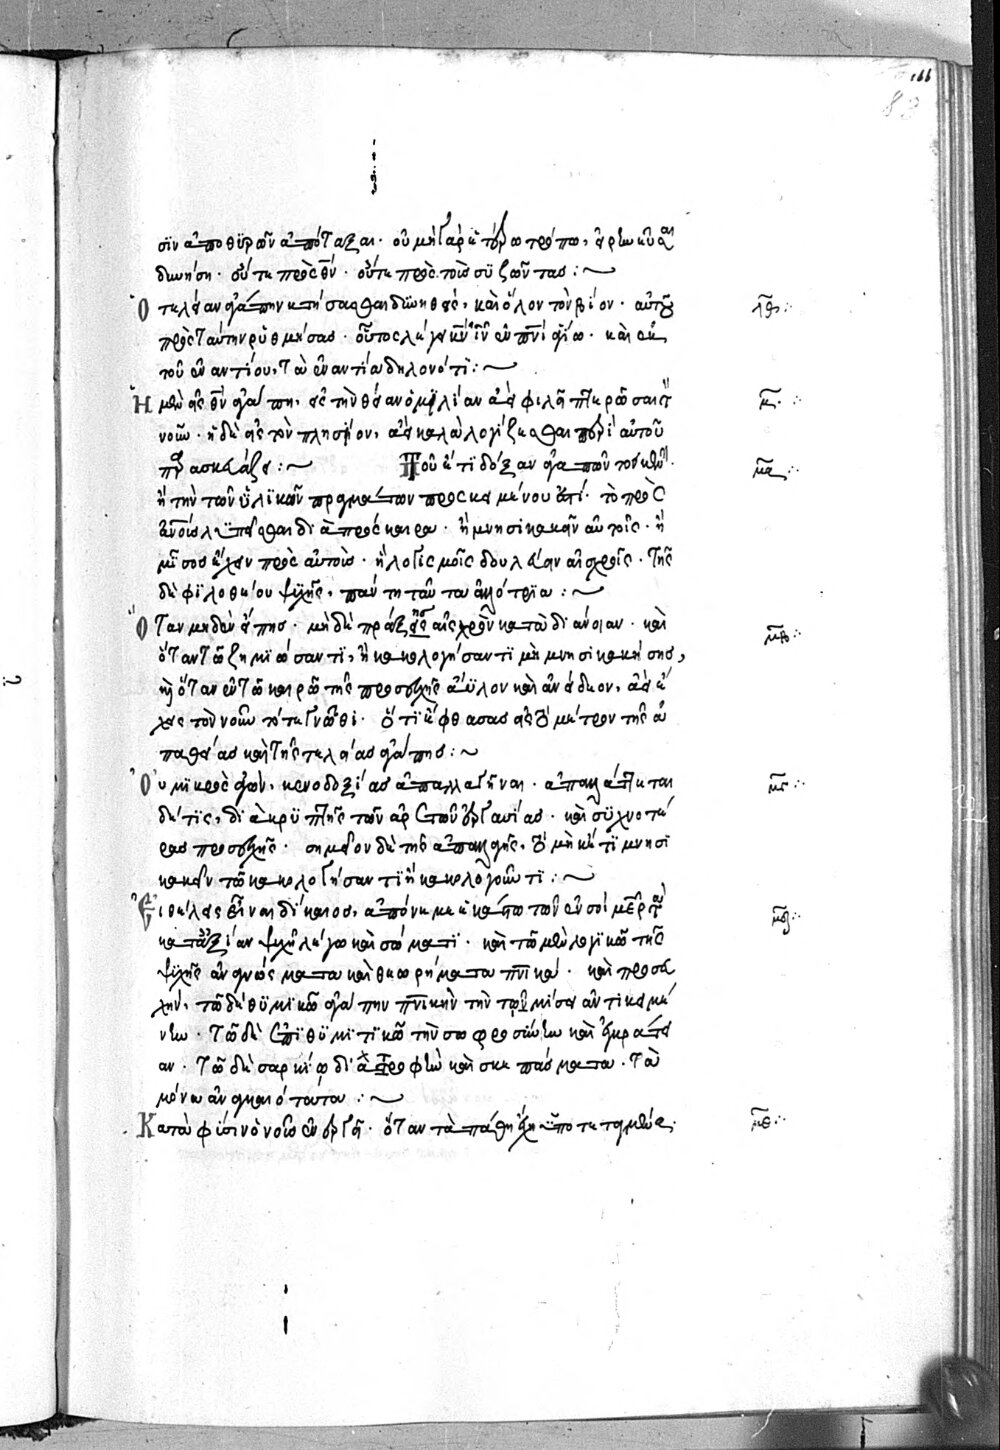 σϊν ἀποθϋρῶν ἀπόταξαι· οὐ μὴ γὰρ τούτω τρόπω,
δυνήση· οὔτε πρὸς θν· οὔτε πρὸς τοὺς συζῶντας:~
Ὁ τελείαν ἀγάπην κτήσασθαι δυνηθεὶς, καὶ ὅλον τὸν βίον· αὐτοῦ λθ
πρὸς ταύτην ρυθμήσας· οὗτος λέγει κν ιν ἐν πνι ἁγίω· καὶ ἐκ
τοῦ ἐναντίου, τὸ ἐναντίον δηλονότι:~
Ἡ μὲν εἰς θν ἀγάπη, εἰς τὴν θείαν ὁμϊλίαν ἀεὶ φιλεῖ πτερῶσαι τ μ
νοῦν· ἡ δὲ εἰς τὸν πλησίον, ἀεὶ καλὰ λογίζεσθαι περὶ αὐτοῦ
παρασκευάζει:~ Τοῦ ἔτι δόξαν ἀγαπῶντος κενὴν· μα
ἢ τὴν τῶν ὑλϊκῶν πραγμάτων προσκειμένου ἐστί· τὸ πρὸς
ἀνους λυπεῖσθαι διὰ πρόσκαιρα· ἢ μνησικακεῖν αὐτοῖς· ἢ
μῖσος ἔχειν πρὸς αὐτοὺς· ἢ λογισμοῖς δουλεύειν αἰσχροῖς· τῆς
δὲ φϊλοθέου ψυχῆς, πάντη ταῦτα ἀλλότρϊα:~
Ὅταν μηδὲν εἴπης· μὴ δὲ πράξεις αἰσχρὸν κατὰ διάνοιαν· καὶ μβ
ὅταν τῶ ζημϊώσαντϊ, ἢ κακολογήσαντϊ μὴ μνησικακήσης,
καὶ ὅταν ἐν τῶ καιρῶ τῆς προσευχῆς ἄϋλον καὶ ἀνείδεον, ἀεὶ ἔ
χεις τὸν νοῦν τότε γνῶθι· ὅτϊ ἔφθασας εἰς τὸ μέτρον τῆς ἀ
παθείας καὶ τῆς τελείας ἀγάπης:~
Οὐ μικρὸς ἀγὼν, κενοδοξίας ἀπαλλαγῆναι· ἀπαλλάττεται μγ
δέ τϊς, διὰ κρϋπτῆς τῶν ἀρετῶν ἐργασίας· καὶ συχνοτέ
ρας προσευχῆς· σημεῖον δὲ τῆς ἀπαλλαγῆς, τὸ μηκέτϊ μνησι
κακεῖν τῶ κακολογήσαντϊ ἢ κακολογοῦντϊ:~
Εἰ θέλεις εἶναι δίκαιος, ἀπόνεμε ἑκάστω τῶν ἐν σοὶ μερῶν μδ
κατ' ἀξίαν ψυχῆ λέγω καὶ σώματι· καὶ τῶ μὲν λογικῶ τῆς
ψυχῆς ἀναγνώσματα καὶ θεωρήματα πνικά· καὶ προσευ
χήν, τῶ δὲ θυμικῶ ἀγάπην πνικὴν τὴν τῶ μίσει ἀντικειμέ
νην· τῶ δὲ ἐπϊθυμϊτικῶ τὴν σωφροσύνην καὶ ἐγκράτει
αν· τῶ δὲ σαρκίω διατροφὴν καὶ σκεπάσματα· τὰ
μόνα ἀναγκαιότατα:~
Κατὰ φύσιν ὁ νοῦς ἐνεργεῖ· ὅταν τὰ πάθη ἔχη ὑποτεταγμένα· με